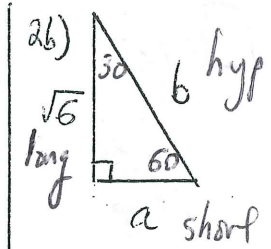 2b)
30
hyp
b
√6
long
60
a short